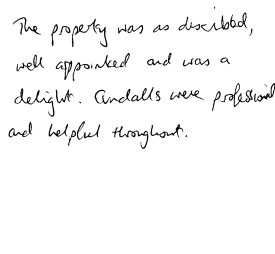 The property was as described,
well appointed and was a
delight. Crudalls were professional
and helpful throughout.